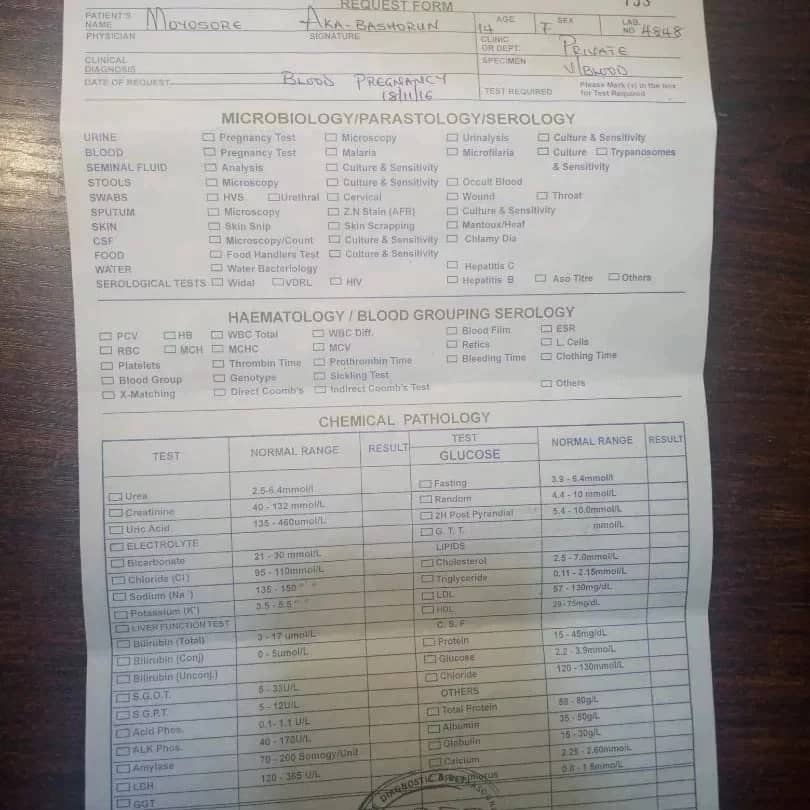 REQUEST FORM
PATIENT'S NAME MOYOSORE AKA-BASHORUN AGE 14 SEX F LAB. NO 4848
PHYSICIAN SIGNATURE CLINIC OR DEPT. PRIVATE
CLINICAL DIAGNOSIS SPECIMEN V/BLOOD
DATE OF REQUEST BLOOD PREGNANCY 18/11/16 TEST REQUIRED Please Mark (v) in the box for Test Required
MICROBIOLOGY/PARASTOLOGY/SEROLOGY
URINE Pregnancy Test Microscopy Urinalysis Culture & Sensitivity
BLOOD Pregnancy Test Malaria Microfilaria Culture Trypanosomes
SEMINAL FLUID Analysis Culture & Sensitivity & Sensitivity
STOOLS Microscopy Culture & Sensitivity Occult Blood
SWABS HVS Urethral Cervical Wound Throat
SPUTUM Microscopy Z.N Stain (AFB) Culture & Sensitivity
SKIN Skin Snip Skin Scrapping Mantoux/Heaf
CSF Microscopy/Count Culture & Sensitivity Chlamy Dia
FOOD Food Handlers Test Culture & Sensitivity
WATER Water Bacteriology Hepatitis C
SEROLOGICAL TESTS Widal VDRL HIV Hepatitis B Aso Titre Others
HAEMATOLOGY / BLOOD GROUPING SEROLOGY
PCV HB WBC Total WBC Diff. Blood Film ESR
RBC MCH MCHC MCV Retics L. Cells
Platelets Thrombin Time Prothrombin Time Bleeding Time Clothing Time
Blood Group Genotype Sickling Test
X-Matching Direct Coomb's Indirect Coomb's Test Others
CHEMICAL PATHOLOGY
TEST NORMAL RANGE RESULT TEST NORMAL RANGE RESULT
GLUCOSE
Urea 2.5-6.4mmol/l Fasting 3.9 - 6.4mmol/l
Creatinine 40 - 132 mmol/L Random 4.4 - 10 mmol/L
Uric Acid 135 - 460umol/L 2H Post Pyrandial 5.4 - 10.0mmol/L
ELECTROLYTE G. T. T. mmol/L
Bicarbonate 21 - 30 mmol/L LIPIDS
Chloride (Cl) 95 - 110mmol/L Cholesterol 2.5 - 7.0mmol/L
Sodium (Na) 135 - 150 Triglyceride 0.11 - 2.15mmol/L
Potassium (K) 3.5 - 5.5 LDL 57 - 130mg/dL
LIVER FUNCTION TEST HDL 29-75mg/dL
Bilirubin (Total) 3 - 17 umol/L C. S. F
Bilirubin (Conj) 0 - 5umol/L Protein 15 - 45mg/dL
Bilirubin (Unconj.) Glucose 2.2 - 3.9mmol/L
S.G.O.T. 5 - 33U/L Chloride 120 - 130mmol/L
S G.P.T. 5 - 12U/L OTHERS
Acid Phos. 0.1- 1.1 U/L Total Protein 58 - 80g/L
ALK Phos. 40 - 170U/L Albumin 35 - 50g/L
Amylase 70 - 200 Somogy/Unit Globulin 15 - 30g/L
LDH 120 - 365 U/L Calcium 2.25 - 2.60mmol/L
GGT 0.8 - 1.5mmo/L
DIAGNOSTIC &